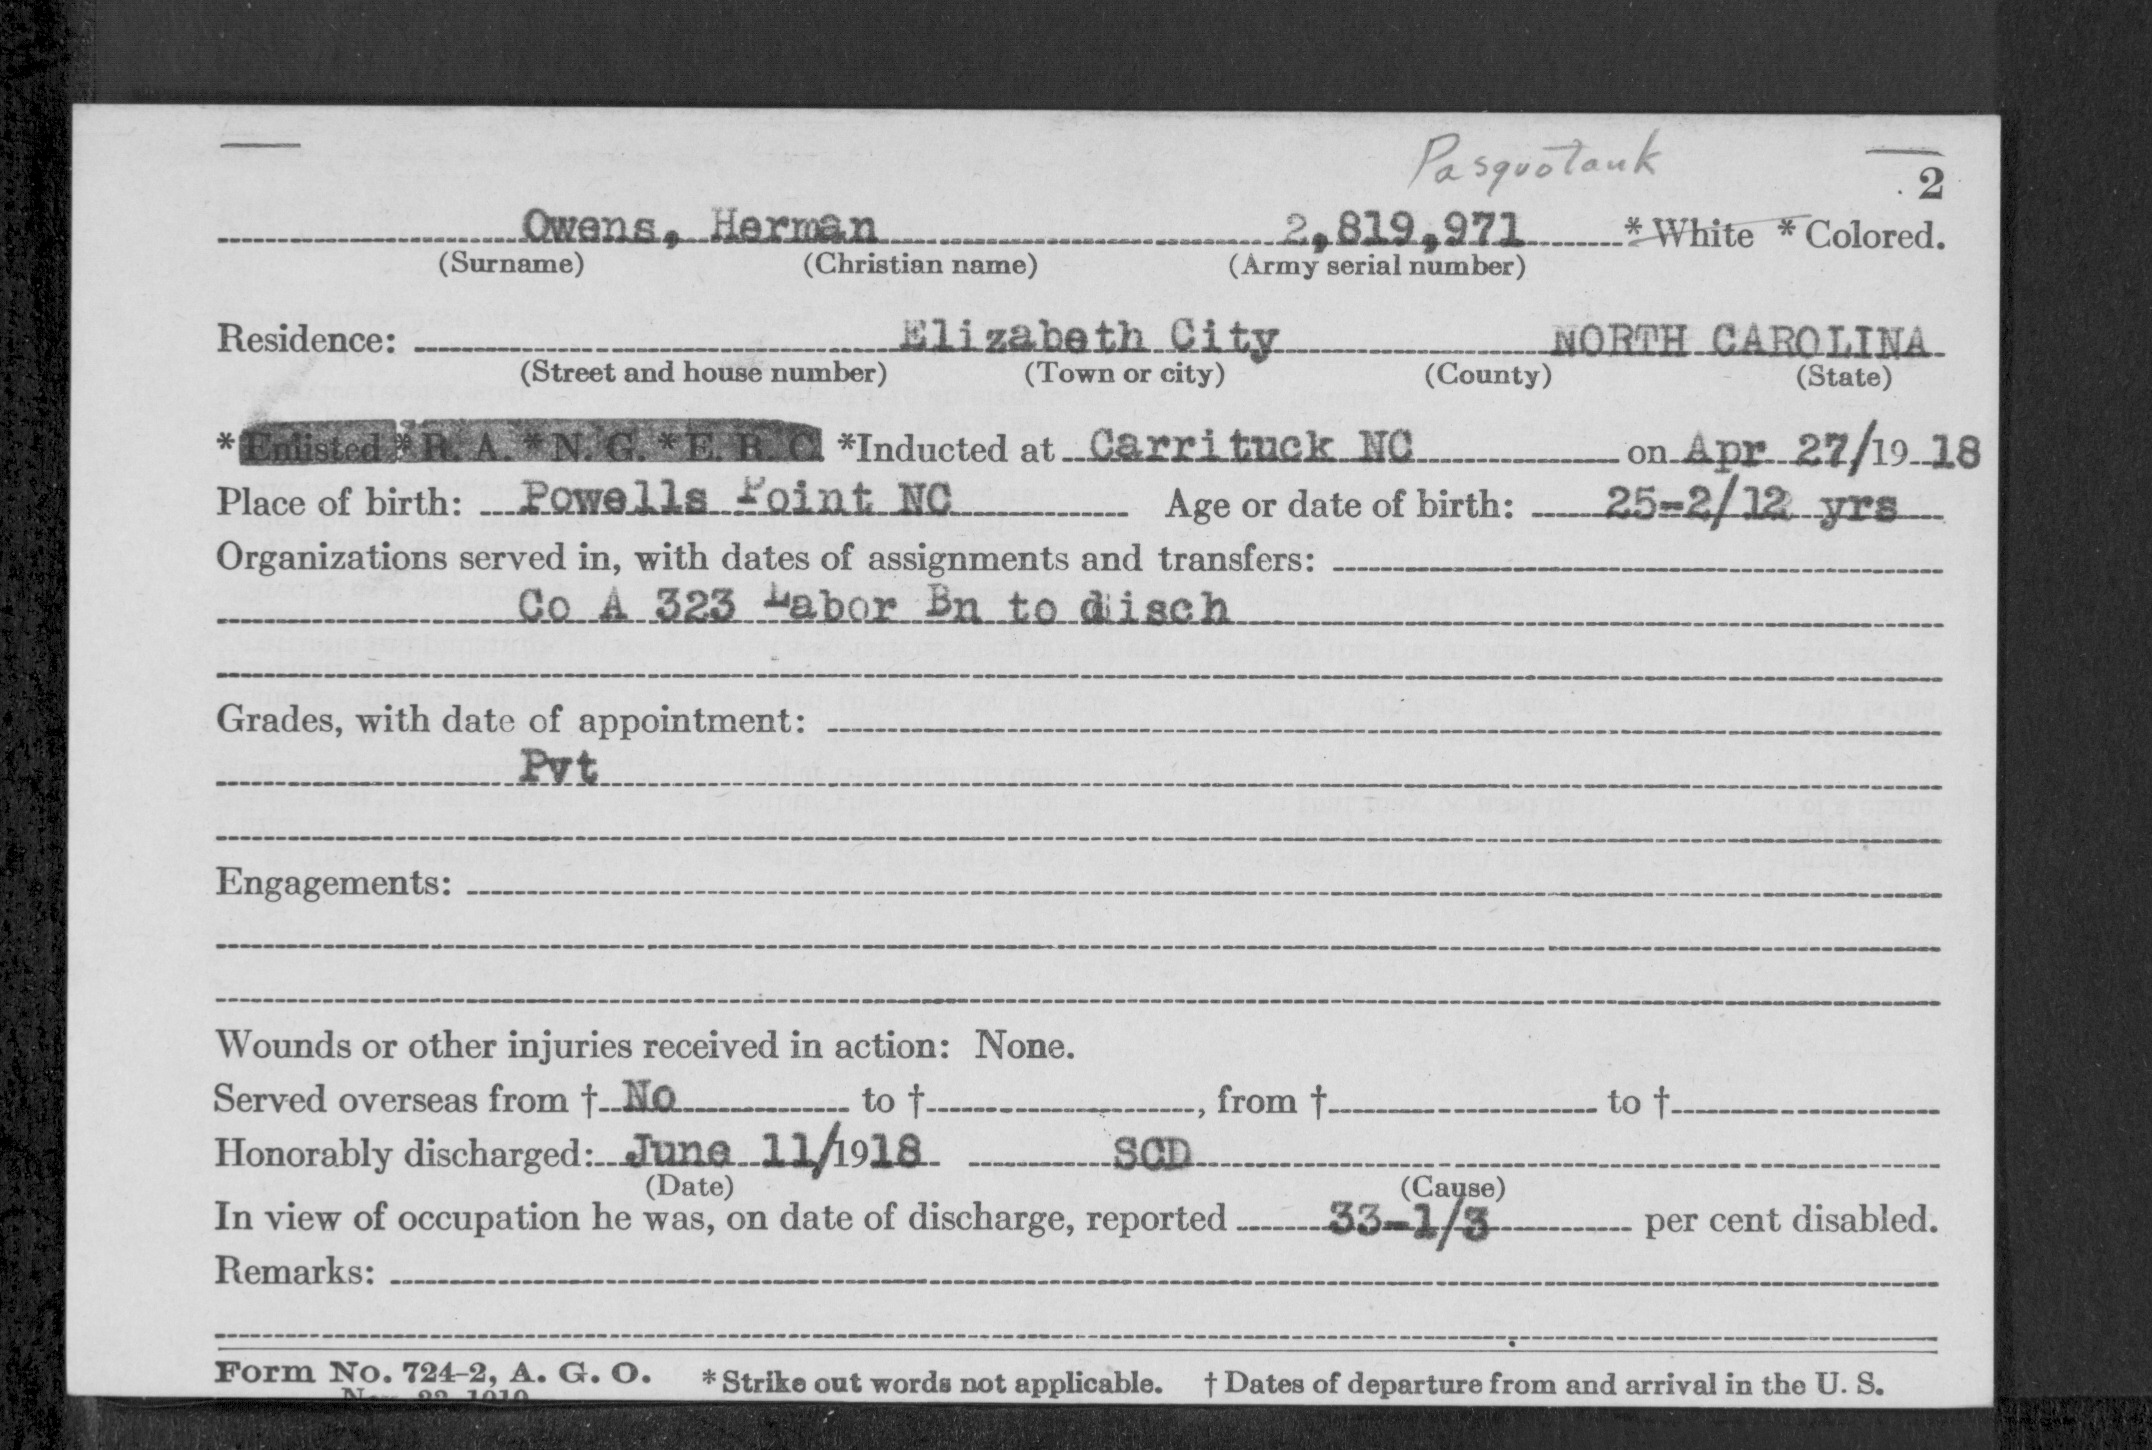 Pasquotank
2
Owens, Herman 2,819,971 * White * Colored.
(Surname) (Christian name) (Army serial number)
Residence: Elizabeth City NORTH CAROLINA
(Street and house number) (Town or city) (County) (State)
* Enlisted * R. A. * N. G. * E. R. C. *Inducted at Carrituck NC on Apr 27/19 18
Place of birth: Powells Point NC Age or date of birth: 25-2/12 yrs
Organizations served in, with dates of assignments and transfers:
Co A 323 Labor Bn to disch
Grades, with date of appointment:
Pvt
Engagements:
Wounds or other injuries received in action: None.
Served overseas from † No to †, from † to †
Honorably discharged: June 11/1918 SCD
(Date) (Cause)
In view of occupation he was, on date of discharge, reported 33-1/3 per cent disabled.
Remarks:
Form No. 724-2, A. G. O. * Strike out words not applicable. † Dates of departure from and arrival in the U. S.